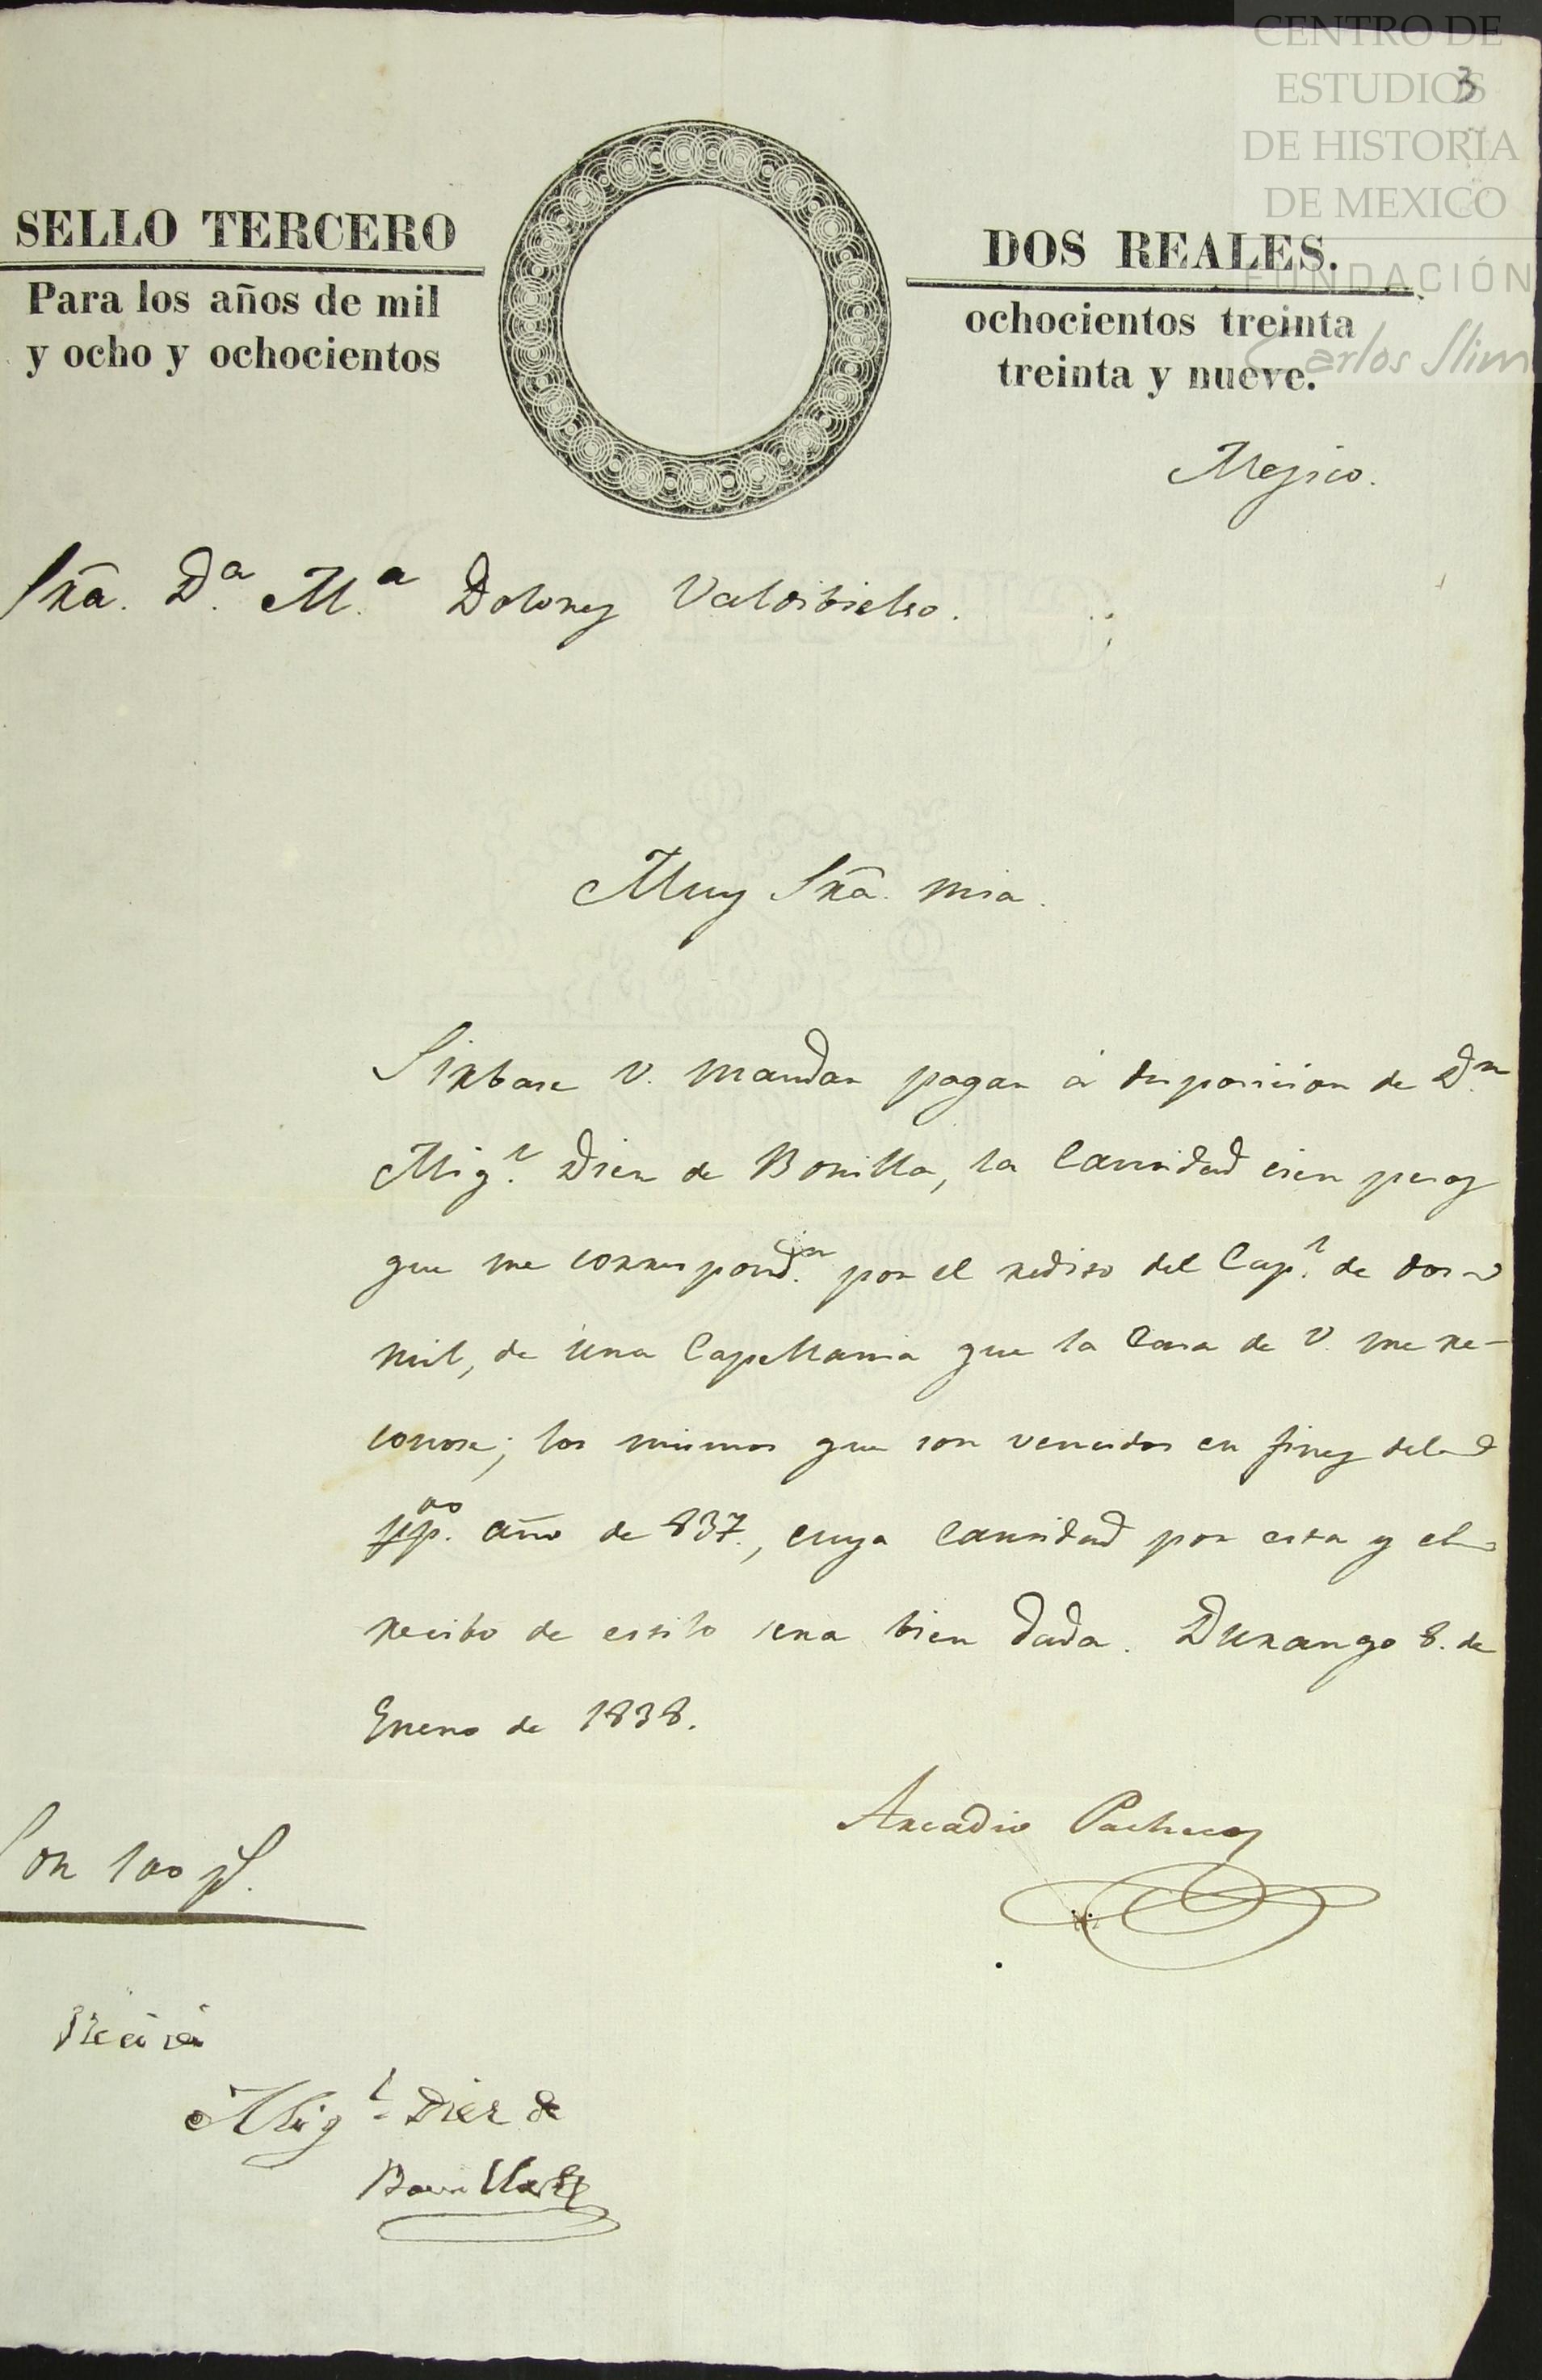 CENTRO DE
ESTUDIOS
DE HISTORIA
DE MEXICO
FUNDACIÓN
Carlos Slim
3
SELLO TERCERO
DOS REALES.
Para los años de mil
ochocientos treinta
y ocho y ochocientos
treinta y nueve.
Mejico.
Sra. D.a M.a Dolores Valdibielso.
Muy Sra. mia.
Sirbase V. mandar pagar á disposicion de D.n
Mig.l Dies de Bonilla, la Cantidad cien pesos
que me correspond.n por el redito del Cap.l de dos
mil, de una Capellania que la Casa de V. me re-
conose; los mismos que son vencidos en fines del
pp.do año de 837., cuya Cantidad por esta y el
recibo de estilo sera bien dada. Durango 8. de
Enero de 1838.
Arcadio Pacheco
Son 100 ps.
Recivi
Mig.l Diez de
Bonilla